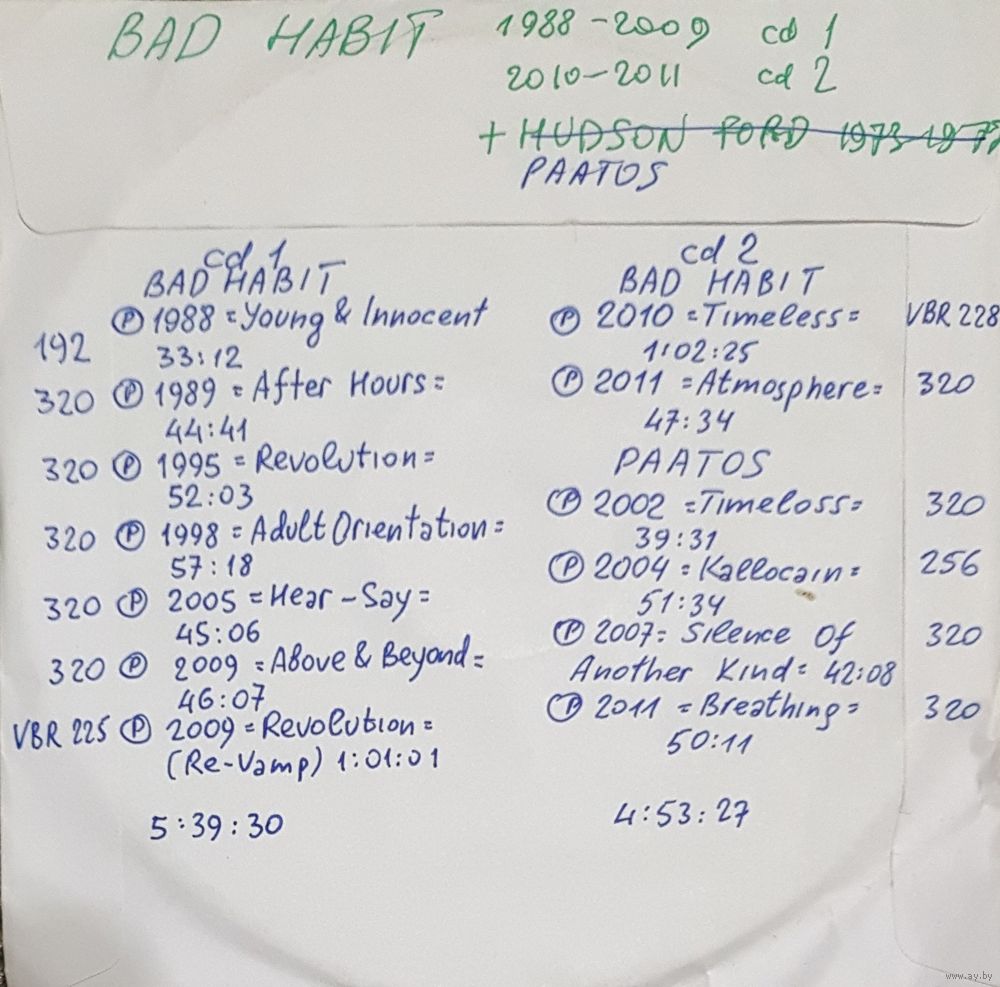 BAD HABIT 1988-2009 cd 1
2010-2011 cd 2
+ HUDSON FORD 1973-1977
PAATOS
cd 1
BAD HABIT
192 Ⓟ 1988 = Young & Innocent
33:12
320 Ⓟ 1989 = After Hours =
44:41
320 Ⓟ 1995 = Revolution =
52:03
320 Ⓟ 1998 = Adult Orientation =
57:18
320 Ⓟ 2005 = Hear-Say =
45:06
320 Ⓟ 2009 = Above & Beyond =
46:07
VBR 225 Ⓟ 2009 = Revolution =
(Re-Vamp) 1:01:01
5:39:30
cd 2
BAD HABIT
Ⓟ 2010 = Timeless = VBR 228
1:02:25
Ⓟ 2011 = Atmosphere = 320
47:34
PAATOS
Ⓟ 2002 = Timeloss = 320
39:31
Ⓟ 2004 = Kallocain = 256
51:34
Ⓟ 2007 = Silence Of 320
Another Kind = 42:08
Ⓟ 2011 = Breathing = 320
50:11
4:53:27
www.ay.by